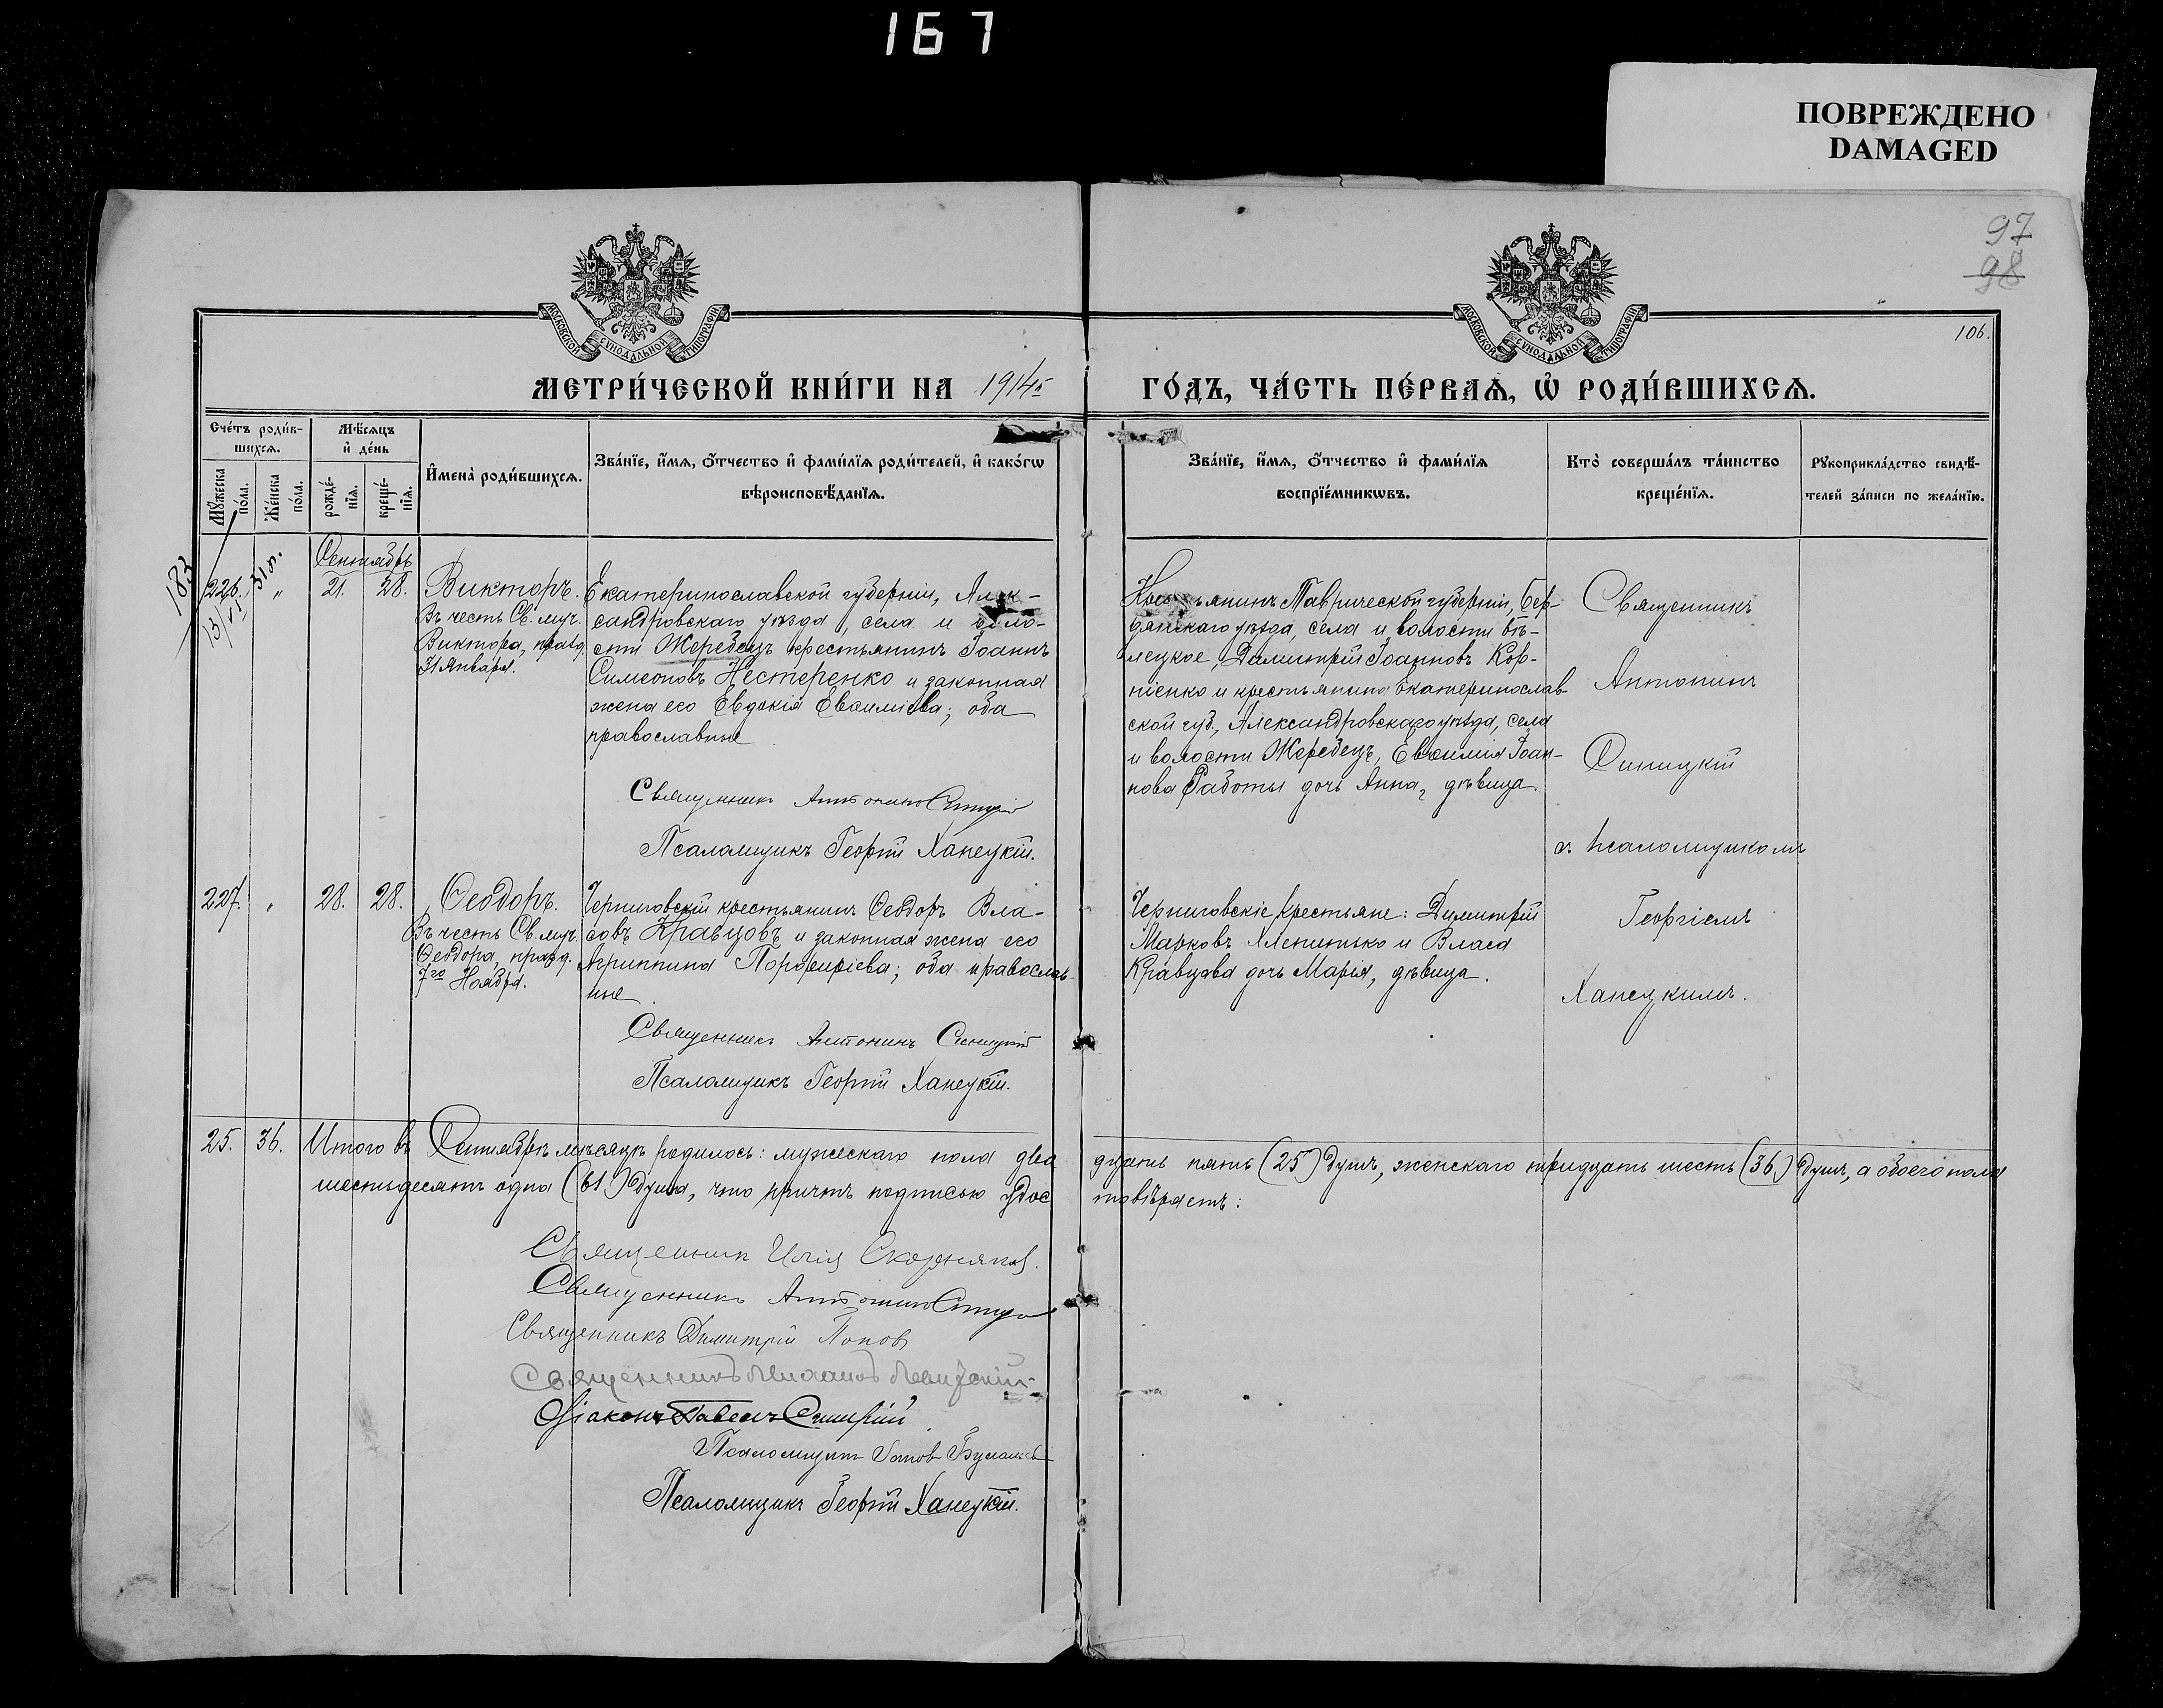 167
ПОВРЕЖДЕНО
DAMAGED
97
98
106.
МОСКОВСКОЙ СѴНОДАЛЬНОЙ ТИПОГРАФІИ
МОСКОВСКОЙ СѴНОДАЛЬНОЙ ТИПОГРАФІИ
МЕТРИ́ЧЕСКОЙ КНИ́ГИ НА 1914
ГО́ДЪ, ЧА́СТЬ ПЕ́РВАѦ, Ѡ҆ РОДИ́ВШИХСѦ.
Сче́тъ роди́в-
шихсѧ.
Мѣ́сѧцъ
и҆ де́нь
Мꙋ́жеска
по́ла.
Же́нска
по́ла.
рожде́-
нїѧ.
креще́-
нїѧ.
И҆мена̀ роди́вшихсѧ.
Зва́нїе, и҆́мѧ, ѻ҆́тчество и҆ фами́лїѧ роди́телей, и҆ како́гѡ
вѣроисповѣ́данїѧ.
Зва́нїе, и҆́мѧ, ѻ҆́тчество и҆ фами́лїѧ
воспрїе́мникѡвъ.
Кто̀ соверша́лъ та́инство
креще́нїѧ.
Рꙋкоприкла́дство свидѣ́-
телей за́писи по жела́нїю.
183
Сентябрь
226. " 21. 28. Викторъ.
Въ честь Св. муч.
Виктора, празд.
31 Января.
Екатеринославской губерніи, Алек-
сандровскаго уѣзда, села и воло-
сти Жеребецъ крестьянинъ Іоаннъ
Симеоновъ Нестеренко и законная
жена его Евдокія Евѳиміева; оба
православные
Священникъ Антонинъ Синицкій
Псаломщикъ Георгій Ханецкій.
Крестьянинъ Таврической губерніи, Бер-
дянскаго уѣзда, села и волости Бѣ-
лецкое, Димитрій Іоанновъ Кор-
ніенко и крестьянина Екатеринослав-
ской губ., Александровскаго уѣзда, села
и волости Жеребецъ, Евѳимія Іоан-
нова Работы дочь Анна, дѣвица.
Священникъ
Антонинъ
Синицкій
съ псаломщикомъ
Георгіемъ
Ханецкимъ.
227. " 28. 28. Ѳеодоръ.
Въ честь Св. муч.
Ѳеодора, празд.
7го Ноября.
Черниговскій крестьянинъ Ѳеодоръ Вла-
совъ Кравцовъ и законная жена его
Агриппина Порфиріева; оба православ-
ные.
Священникъ Антонинъ Синицкій
Псаломщикъ Георгій Ханецкій.
Черниговскіе крестьяне: Димитрій
Марковъ и Власа
Кравцова дочь Марія, дѣвица.
25. 36. Итого въ Сентябрѣ мѣсяцѣ родилось: мужескаго пола два
дцать пять (25) душъ, женскаго тридцать шесть (36) душъ, а обоего пола
шестьдесятъ одна (61) душа, что причтъ подписью удос
товѣряетъ:
Священникъ Илія Скорняковъ.
Священникъ Антонинъ Синицкій
Священникъ Димитрій Поповъ
Священникъ
Діаконъ Павелъ
Псаломщикъ
Псаломщикъ Георгій Ханецкій.